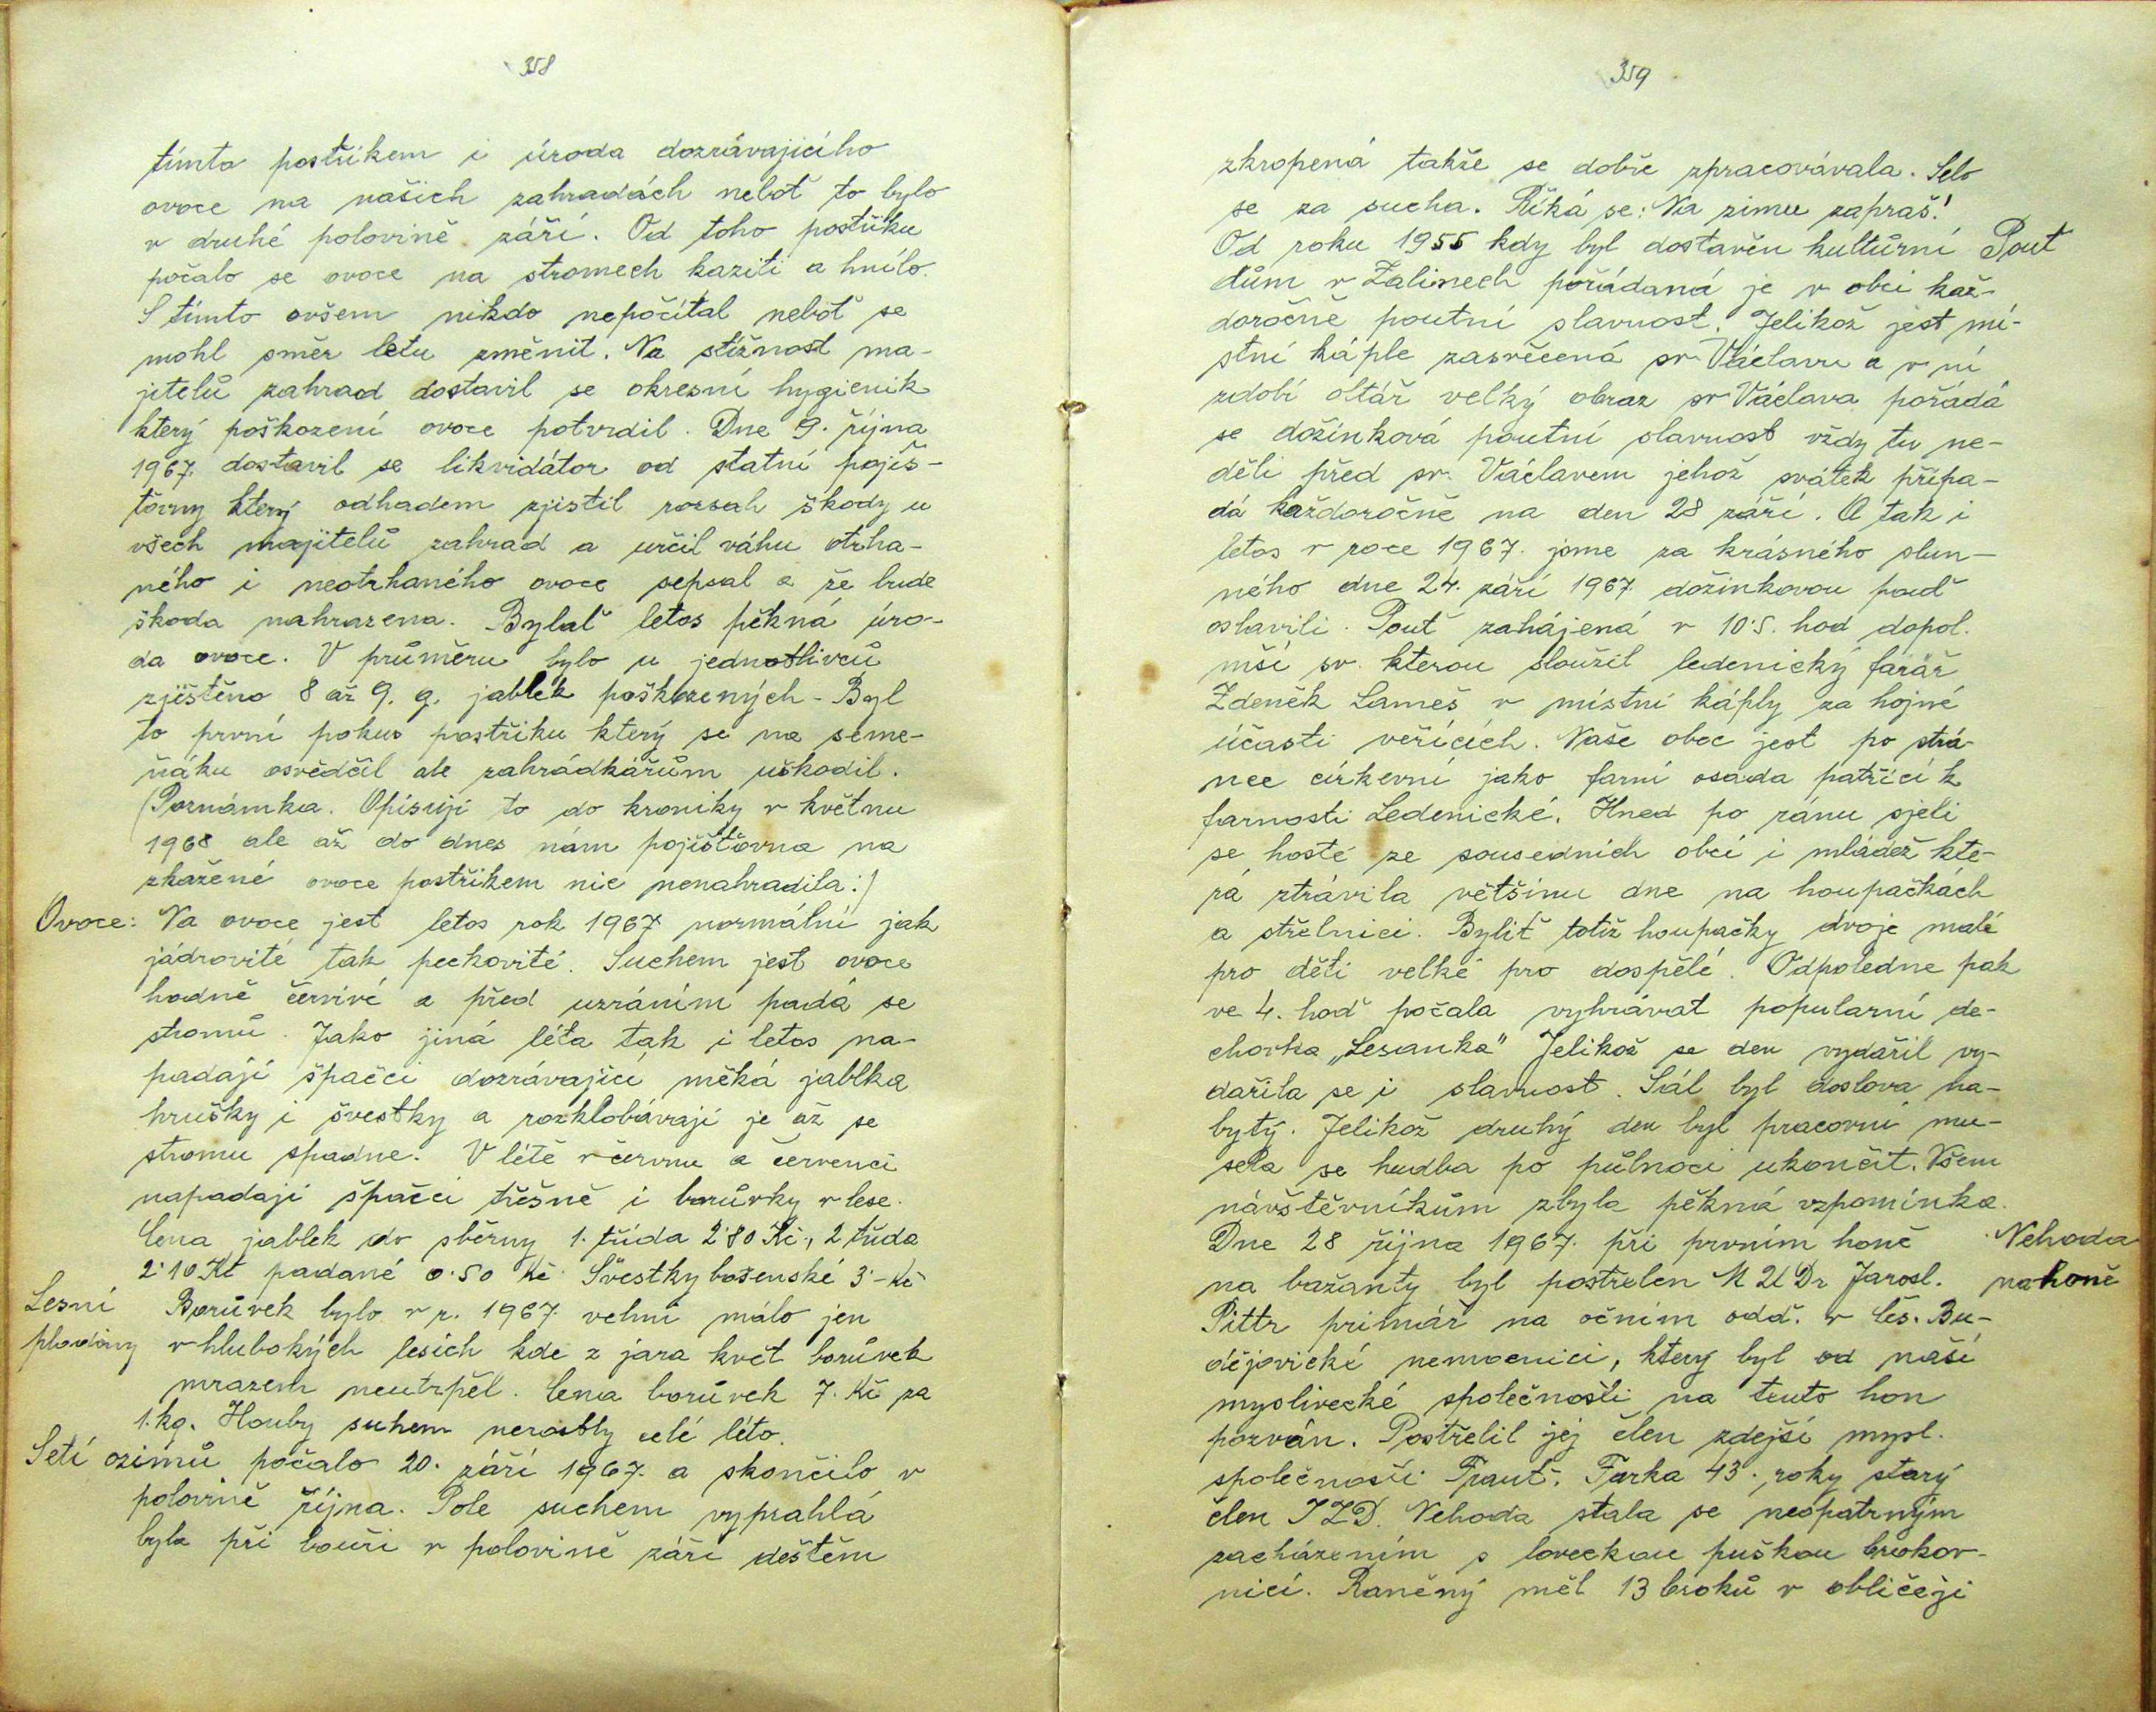 358
tímto postřikem i úroda dozrávajicího
ovoce na našich zahradách neboť to bylo
v druhé polovině září. Od toho postřiku
počalo se ovoce na stromech kaziti a hnílo.
S tímto ovšem nikdo nepočítal neboť se
mohl směr letu změnit. Na stížnost ma-
jitelů zahrad dostavil se okresní hygienik
který poškození ovoce potvrdil. Dne 9. října
1967. dostavil se likvidátor od statní pojiš-
ťovny který odhadem zjistil rozsah škody u
všech majitelů zahrad a určil váhu otrha-
ného i neotrhaného ovoce sepsal a že bude
škoda nahrazena. Bylať letos pěkná úro-
da ovoce. V průměru bylo u jednotlivců
zjištěno 8 až 9. q. jablek poškozených - Byl
to první pokus postřiku který se na seme-
ňáku osvědčil ale zahrádkářům uškodil.
(Poznámka. Opisuji to do kroniky v květnu
1968 ale až do dnes nám pojišťovna na
zkažené ovoce postřikem nic nenahradila:)
Ovoce: Na ovoce jest letos rok 1967 normální jak
jádrovité tak peckovité. Suchem jest ovoce
hodně červivé a před uzráním padá se
stromů. Jako jiná léta tak i letos na-
padají špačci dozrávajíci měká jablka
hrušky i švestky a rozklobávají je až se
stromu spadne. V létě v červnu a červenci
napadaji špačci třešně i borůvky v lese.
Cena jablek do sběrny 1. třída 2·80 Kč., 2 třída
2·10 Kč padané 0·50 Kč. Švestky bosenské 3·- Kč
Lesní plodiny Borůvek bylo v r. 1967. velmi málo jen
v hlubokých lesích kde z jara květ borůvek
mrazem neutrpěl. Cena borůvek 7. Kč za
1. kg. Houby suhem nerostly celé léto.
Setí ozimů počalo 20. září 1967. a skončilo v
polovině října. Pole suchem vyprahlá
byla při bouři v polovině září deštěm
359
zkropená takže se dobře zpracovávala. Selo
se za sucha. Říká se: Na zimu zapraš!
Od roku 1955 kdy byl dostavěn kultůrní Pout
dům v Zalinech pořádaná je v obci kaž-
doročně poutní slavnost. Jelikož jest mí-
stní káple zasvěcená sv. Václavu a v ní
zdobí oltář velký obraz sv Václava pořádá
se dožínková poutní slavnost vždy tu ne-
děli před sv. Václavem jehož svátek přípa-
dá každoročně na den 28 září. A tak i
letos v roce 1967. jsme za krásného slun-
ného dne 24. září 1967. dožinkovou pouť
oslavili. Pouť zahájená v 10·5. hod dopol.
mší sv. kterou sloužil ledenický farář
Zdeněk Lameš v místní káply za hojné
účasti veřících. Naše obec jest po strá-
nce církevní jako farní osada patřící k
farnosti Ledenické. Hned po ránu sjeli
se hosté ze sousedních obcí i mládež kte-
rá ztrávila většinu dne na houpačkách
a střelnici. Byliť totiž houpačky dvoje malé
pro děti velké pro dospělé. Odpoledne pak
ve 4. hoď počala vyhrávat popularní de-
chovka „Lesanka" Jelikož se den vydařil vy-
dařila se i slavnost. Sál byl doslova na-
bytý. Jelikož druhý den byl pracovní mu-
sela se hudba po půlnoci ukončit. Všem
návštěvníkům zbyla pěkná vzpomínka.
Dne 28 října 1967. při prvním honě Nehoda
na bažanty byl postřelen M U Dr Jarosl. na honě
Pittr primář na očním odd. v Čes. Bu-
dějovické nemocnici, který byl od naší
myslivecké společnosti na tento hon
pozván. Postřelil jej člen zdejší mysl.
společnosti Frant. Furka 43. roky starý
člen JZD. Nehoda stala se neopatrným
zacházením s loveckou puškou brokov-
nicí. Raněný měl 13 broků v obličeji